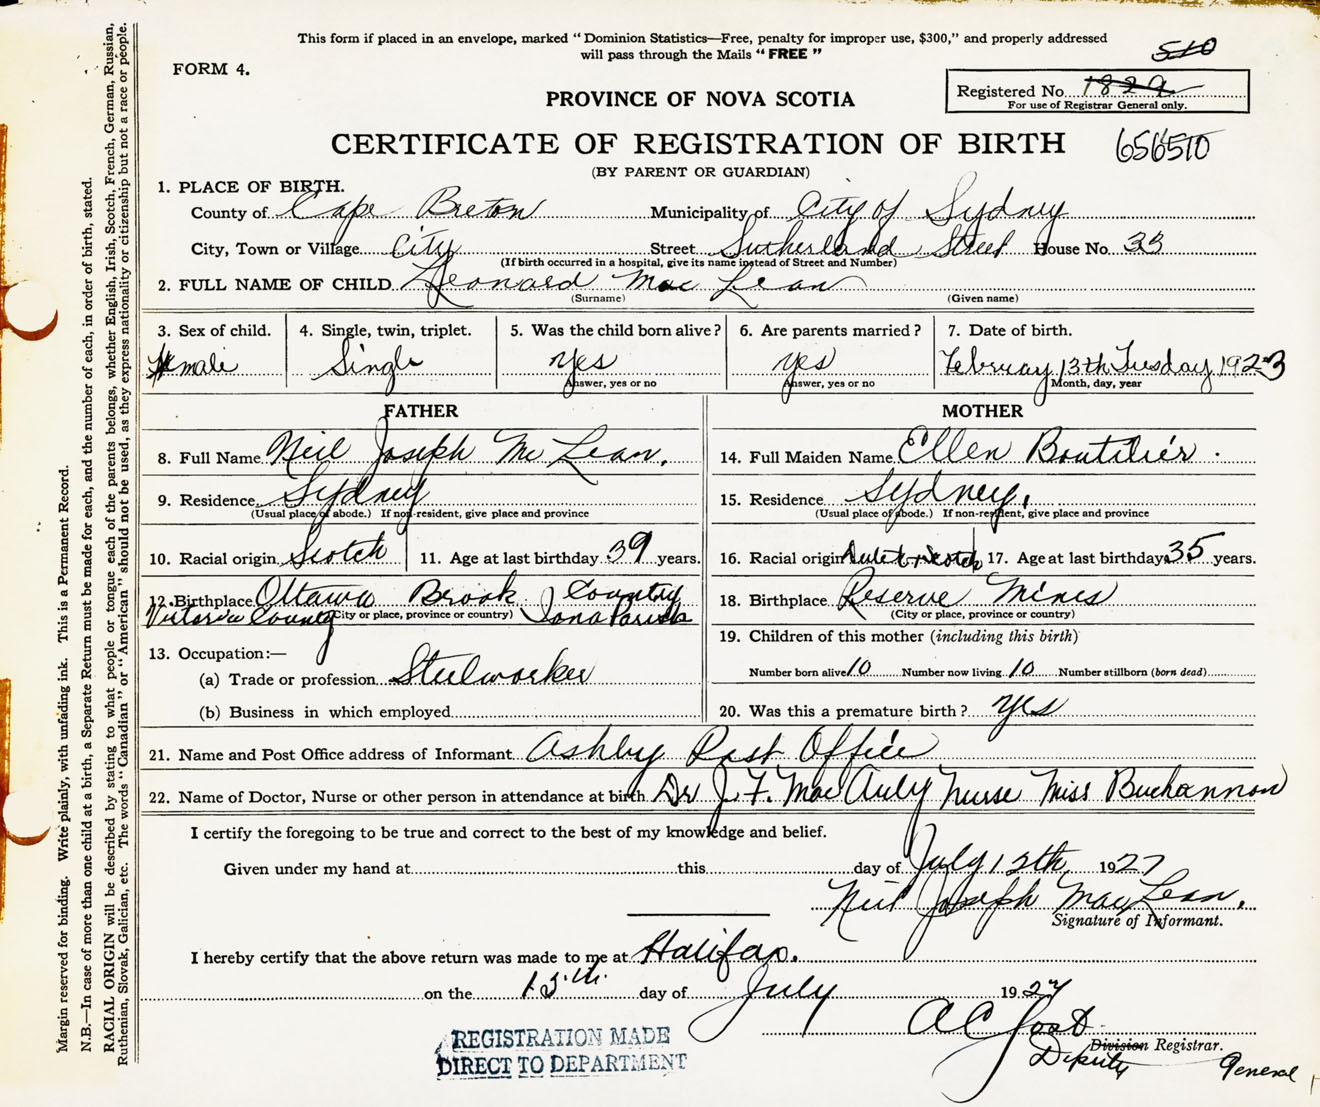 This form if placed in an envelope, marked “Dominion Statistics—Free, penalty for improper use, $300,” and properly addressed
will pass through the Mails “FREE”
510
FORM 4.
Registered No. 1829
For use of Registrar General only.
PROVINCE OF NOVA SCOTIA
CERTIFICATE OF REGISTRATION OF BIRTH
656510
(BY PARENT OR GUARDIAN)
1. PLACE OF BIRTH.
County of Cape Breton Municipality of City of Sydney
City, Town or Village City Street Sutherland Street House No. 33
(If birth occurred in a hospital, give its name instead of Street and Number)
2. FULL NAME OF CHILD Leonard Mac Lean
(Surname) (Given name)
3. Sex of child. 4. Single, twin, triplet. 5. Was the child born alive? 6. Are parents married? 7. Date of birth.
male Single yes yes February 13th Tuesday 1923
Answer, yes or no Answer, yes or no Month, day, year
FATHER MOTHER
8. Full Name Neil Joseph Mc Lean. 14. Full Maiden Name Ellen Boutilier
9. Residence Sydney 15. Residence Sydney.
(Usual place of abode.) If non-resident, give place and province (Usual place of abode.) If non-resident, give place and province
10. Racial origin Scotch 11. Age at last birthday 39 years. 16. Racial origin & Scotch 17. Age at last birthday 35 years.
12. Birthplace Ottawa Brook Country 18. Birthplace Reserve Mines
Victoria County (City or place, province or country) Iona Parish (City or place, province or country)
13. Occupation:— 19. Children of this mother (including this birth)
(a) Trade or profession Steelworker Number born alive 10 Number now living 10 Number stillborn (born dead)
(b) Business in which employed 20. Was this a premature birth? yes
21. Name and Post Office address of Informant Ashby Post Office
22. Name of Doctor, Nurse or other person in attendance at birth Dr J. F. Mac Auly Nurse Miss Buchannon
I certify the foregoing to be true and correct to the best of my knowledge and belief.
Given under my hand at this day of July 12th 1927
Neil Joseph Mac Lean.
Signature of Informant.
I hereby certify that the above return was made to me at Halifax.
on the 15th. day of July 1927
A C Jost
Division Registrar.
Deputy General
REGISTRATION MADE
DIRECT TO DEPARTMENT
Margin reserved for binding. Write plainly, with unfading ink. This is a Permanent Record.
N.B.—In case of more than one child at a birth, a Separate Return must be made for each, and the number of each, in order of birth, stated.
RACIAL ORIGIN will be described by stating to what people or tongue each of the parents belongs, whether English, Irish, Scotch, French, German, Russian,
Ruthenian, Slovak, Galician, etc. The words “Canadian” or “American” should not be used, as they express nationality or citizenship but not a race or people.